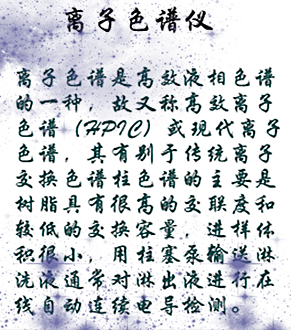 离子色谱仪
离子色谱是高效液相色谱
的一种，故又称高效离子
色谱（HPIC）或现代离子
色谱，其有别于传统离子
交换色谱柱色谱的主要是
树脂具有很高的交联度和
较低的交换容量，进样体
积很小，用柱塞泵输送淋
洗液通常对淋出液进行在
线自动连续电导检测。